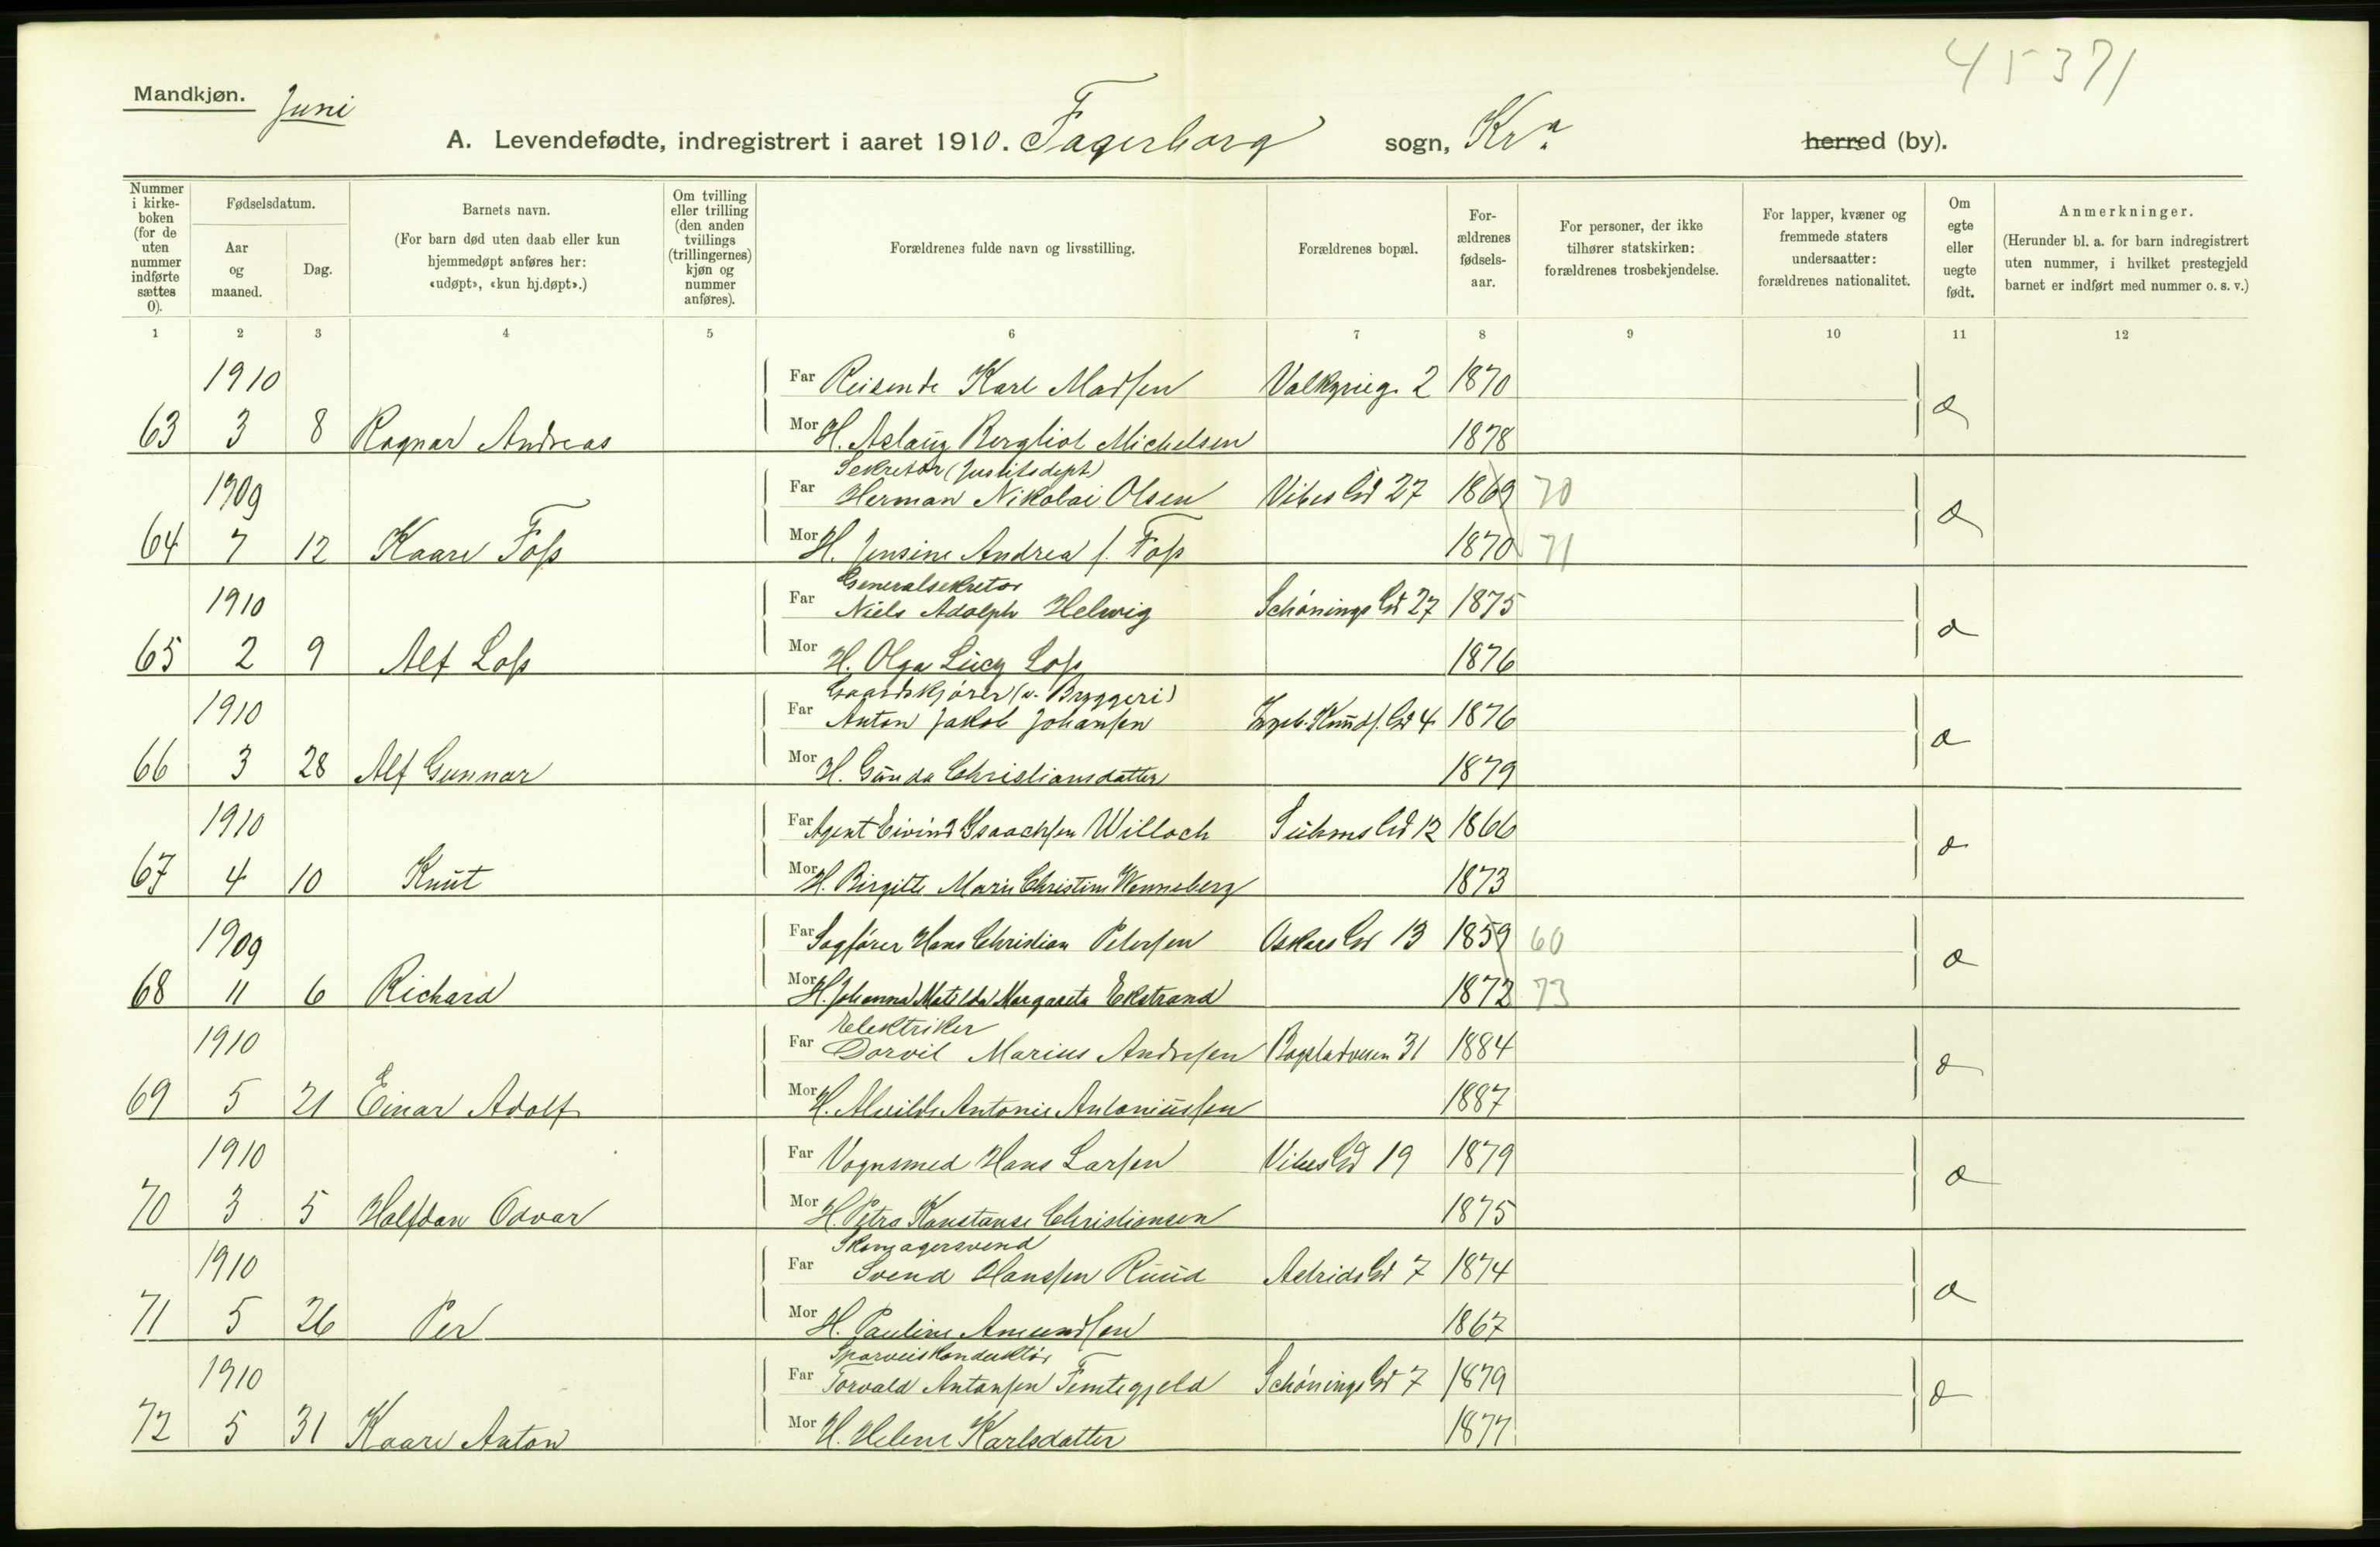 45371
Mandkjøn. Juni
A. Levendefødte, indregistrert i aaret 1910. Fagerborg sogn, Kra. herred (by).
Nummer i kirkeboken (for de uten nummer indførte sættes 0). | Fødselsdatum. Aar og maaned. | Dag. | Barnets navn. (For barn død uten daab eller kun hjemmedøpt anføres her: «udøpt», «kun hj.døpt».) | Om tvilling eller trilling (den anden tvillings (trillingernes) kjøn og nummer anføres). | Forældrenes fulde navn og livsstilling. | Forældrenes bopæl. | Forældrenes fødselsaar. | For personer, der ikke tilhører statskirken: forældrenes trosbekjendelse. | For lapper, kvæner og fremmede staters undersaatter: forældrenes nationalitet. | Om egte eller uegte født. | Anmerkninger. (Herunder bl. a. for barn indregistrert uten nummer, i hvilket prestegjeld barnet er indført med nummer o. s. v.)
1 2 3 4 5 6 7 8 9 10 11 12
1910 Far Reisende Karl Madsen Valkyrieg. 2 1870
63 3 8 Ragnar Andreas Mor H. Aslaug Bergliot Michelsen 1878
Sekretær (Justitsdept)
1909 Far Herman Nikolai Olsen Vibes Gd 27 1869 70
64 7 12 Kaare Foss Mor H. Jensine Andrea f. Foss 1870 71
Generalsekretær
1910 Far Niels Adolph Helwig Schönings Gd 27 1875
65 2 9 Alf Loss Mor H. Olga Lucy Loss 1876
Gaardskjører (v. Bryggeri)
1910 Far Anton Jakob Johansen Ingeb. Knuds. Gd 4 1876
66 3 28 Alf Gunnar Mor H. Gunda Christiansdatter 1879
1910 Far Agent Eivind Isaachsen Willoch Suhms Gd 12 1866
67 4 10 Knut Mor H. Birgitte Marie Christine Wenneberg 1873
1909 Far Sagfører Hans Christian Petersen Oskars Gd 13 1859 60
68 11 6 Richard Mor H. Johanna Matilda Margareta Ekstrand 1872 73
Elektriker
1910 Far Dorvil Marius Andresen Bogstadveien 31 1884
69 5 21 Einar Adolf Mor H. Alvilde Antonie Antoniussen 1887
1910 Far Vognsmed Hans Larsen Vibes Gd 19 1879
70 3 5 Halfdan Odvar Mor H. Petra Konstanse Christiansen 1875
Skomagersvend
1910 Far Svend Hanssen Ruud Astrids Gd 7 1874
71 5 26 Per Mor H. Pauline Amundsen 1867
Sporveiskonduktør
1910 Far Torvald Antonsen Femtegjeld Schönings Gd 7 1879
72 5 31 Kaare Anton Mor H. Helene Karlsdatter 1877